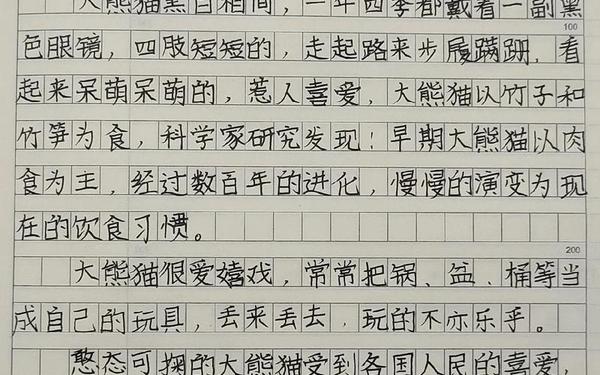 大熊猫黑白相间，一年四季都戴着一副黑
100
色眼镜，四肢短短的，走起路来步履蹒跚，看
起来呆萌呆萌的，惹人喜爱，大熊猫以竹子和
竹笋为食，科学家研究发现！早期大熊猫以肉
食为主，经过数百年的进化，慢慢的演变为现
在的饮食习惯。
200
大熊猫很爱嬉戏，常常把锅、盆、桶等当
成自己的玩具，丢来丢去，玩的不亦乐乎。
憨态可掬的大熊猫受到各国人民的喜爱，